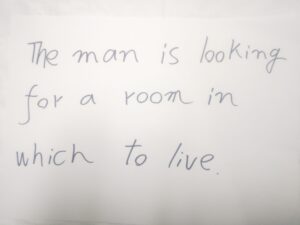 The man is looking
for a room in
which to live.